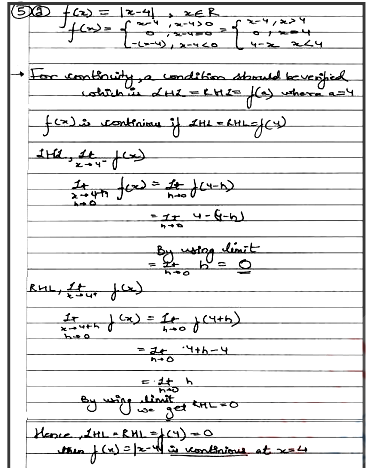 ⑤ ⓐ f(x) = |x-4| , x∈R
f(x) = { x-4 , x-4>0 = { x-4, x>4
0 , x-4=0 0 , x=4
-(x-4), x-4<0 4-x x<4
→ For continuity, a condition should be verified
which is LHL = RHL = f(a) where a=4
f(x) is continious if LHL = RHL = f(4)
LHL, Lt x→4⁻ f(x)
Lt x→4-h h→0 f(x) = Lt h→0 f(4-h)
= Lt h→0 4-(4-h)
By using limit
= Lt h→0 h = 0
RHL, Lt x→4⁺ f(x)
Lt x→4+h h→0 f(x) = Lt h→0 f(4+h)
= Lt h→0 4+h-4
= Lt h→0 h
By using limit
we get RHL = 0
Hence, LHL = RHL = f(4) = 0
then f(x) = |x-4| is continious at x=4